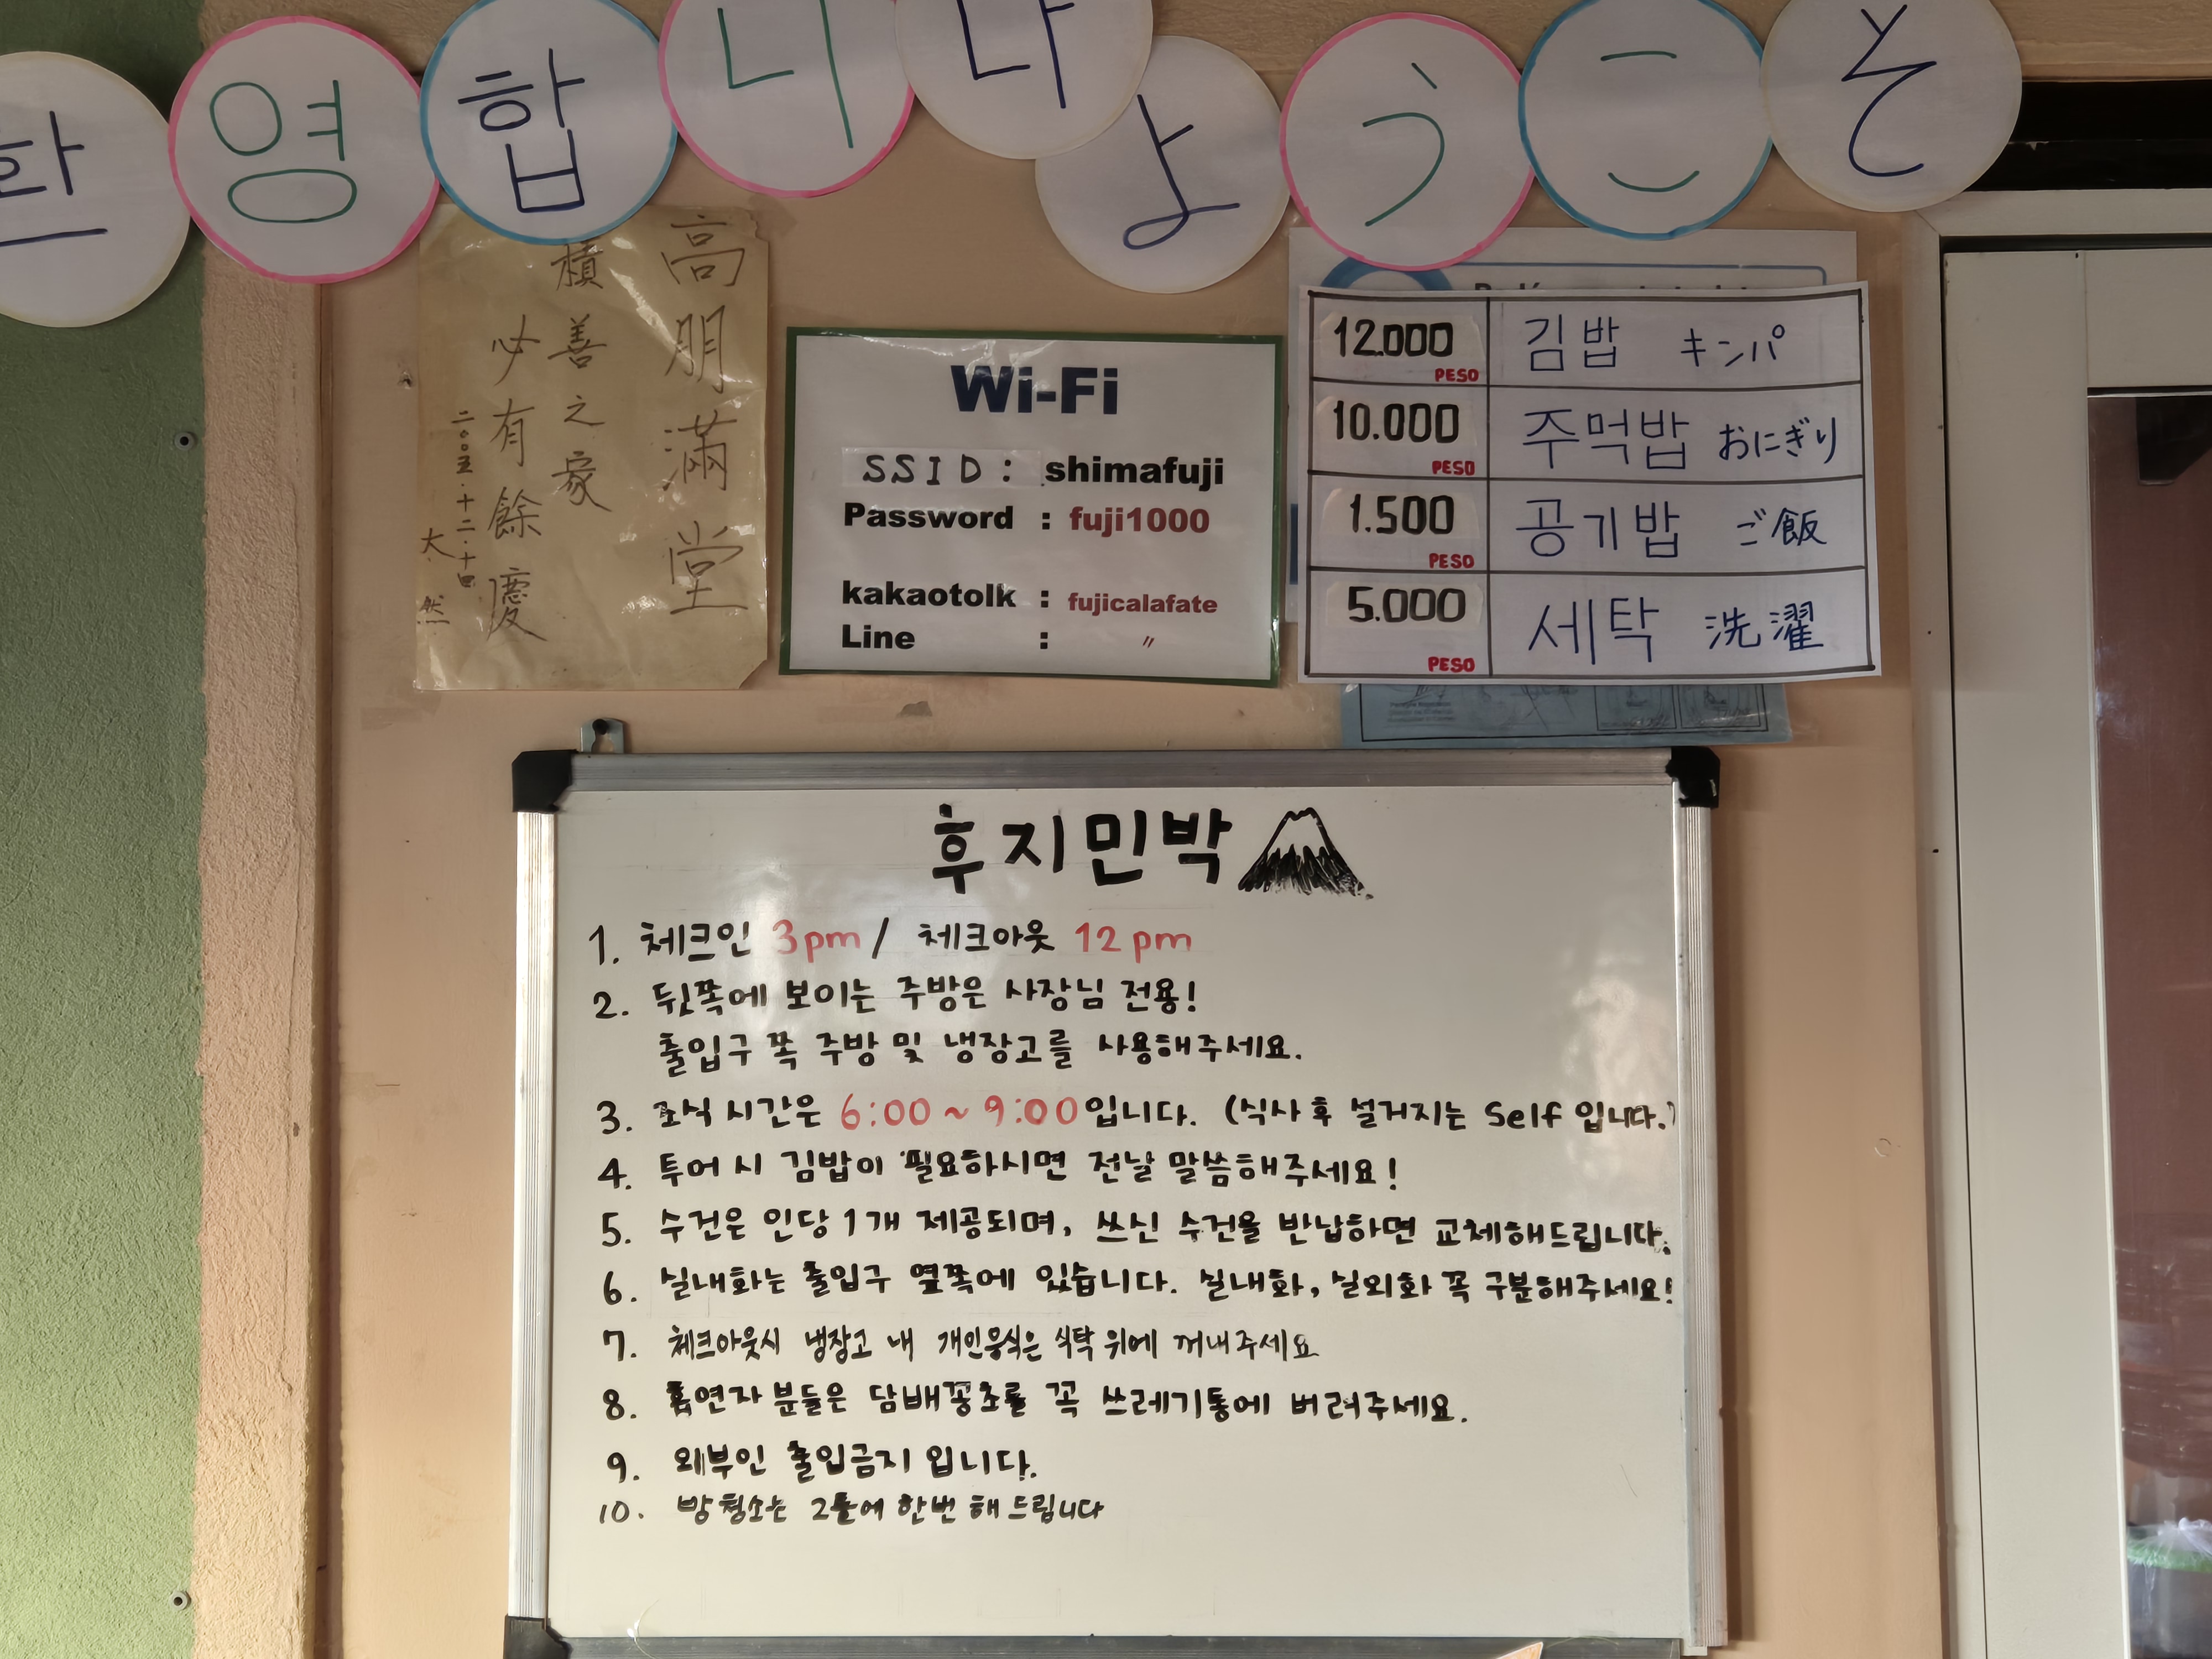 환영합니다
ようこそ
高朋滿堂
積善之家
必有餘慶
二００五·十二·十四
大然
Wi-Fi
SSID: shimafuji
Password : fuji1000
kakaotolk : fujicalafate
Line : 〃
12.000 PESO 김밥 キンパ
10.000 PESO 주먹밥 おにぎり
1.500 PESO 공기밥 ご飯
5.000 PESO 세탁 洗濯
후지민박
1. 체크인 3pm / 체크아웃 12pm
2. 뒷쪽에 보이는 주방은 사장님 전용!
출입구 쪽 주방 및 냉장고를 사용해주세요.
3. 조식 시간은 6:00 ~ 9:00입니다. (식사 후 설거지는 Self 입니다.)
4. 투어 시 김밥이 필요하시면 전날 말씀해주세요!
5. 수건은 인당 1개 제공되며, 쓰신 수건을 반납하면 교체해드립니다.
6. 실내화는 출입구 옆쪽에 있습니다. 실내화, 실외화 꼭 구분해주세요!
7. 체크아웃시 냉장고 내 개인음식은 식탁 위에 꺼내주세요
8. 흡연자 분들은 담배꽁초를 꼭 쓰레기통에 버려주세요.
9. 외부인 출입금지 입니다.
10. 방 청소는 2틀에 한번 해 드립니다